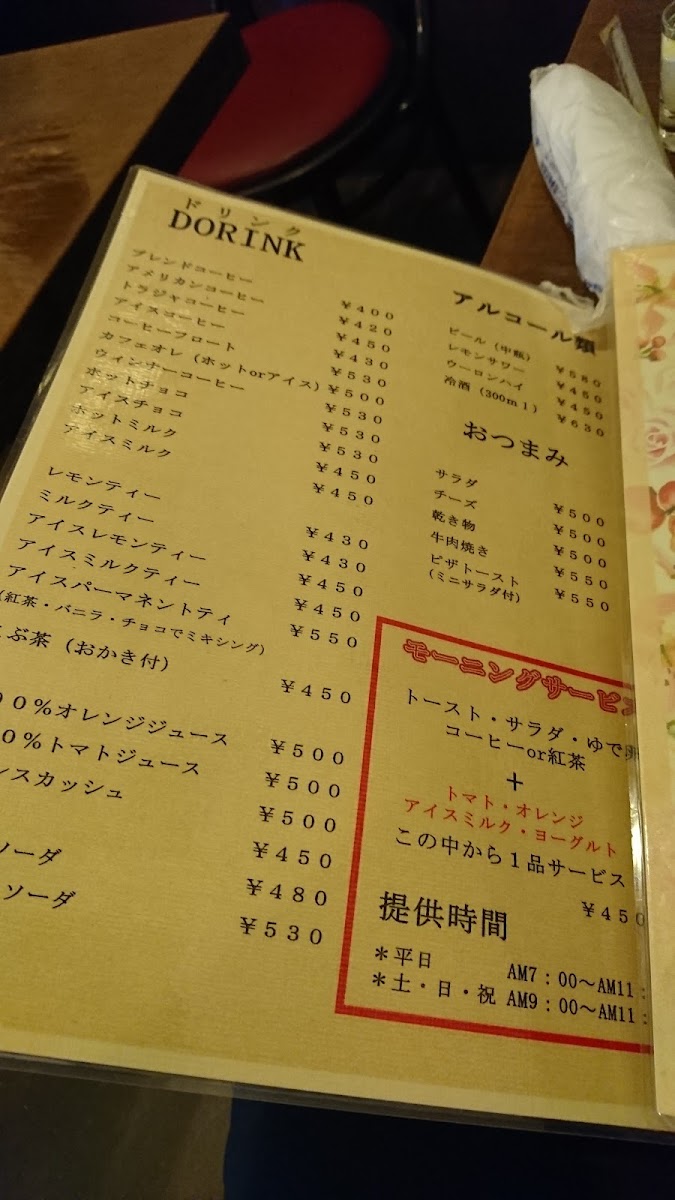 ドリンク
DORINK
ブレンドコーヒー ￥400
アメリカンコーヒー ￥420
トラジャコーヒー ￥450
アイスコーヒー ￥430
コーヒーフロート ￥530
カフェオレ（ホットorアイス） ￥500
ウィンナーコーヒー ￥530
ホットチョコ ￥530
アイスチョコ ￥530
ホットミルク ￥450
アイスミルク ￥450
レモンティー ￥430
ミルクティー ￥430
アイスレモンティー ￥450
アイスミルクティー ￥450
アイスパーマネントティ ￥550
（紅茶・バニラ・チョコでミキシング）
ぶ茶（おかき付） ￥450
００％オレンジジュース ￥500
０％トマトジュース ￥500
スカッシュ ￥500
￥450
ソーダ ￥480
ソーダ ￥530
アルコール類
ビール（中瓶） ￥580
レモンサワー ￥450
ウーロンハイ ￥450
冷酒（300ml） ￥630
おつまみ
サラダ ￥500
チーズ ￥500
乾き物 ￥500
牛肉焼き ￥550
ピザトースト ￥550
（ミニサラダ付）
モーニングサービス
トースト・サラダ・ゆで
コーヒーor紅茶
＋
トマト・オレンジ
アイスミルク・ヨーグルト
この中から１品サービス
￥450
提供時間
＊平日 AM7：00～AM11：
＊土・日・祝 AM9：00～AM11：